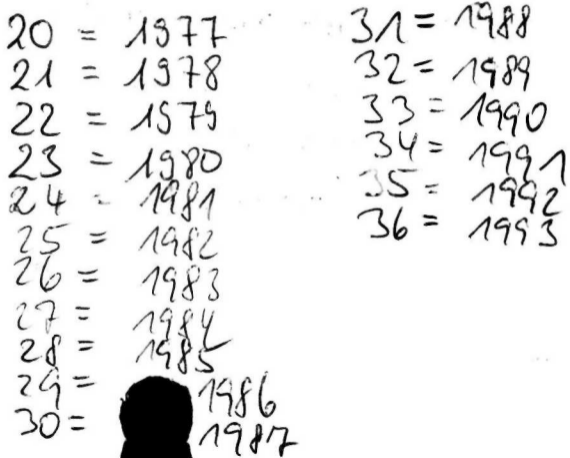 20 = 1977
21 = 1978
22 = 1979
23 = 1980
24 = 1981
25 = 1982
26 = 1983
27 = 1984
28 = 1985
29 = 1986
30 = 1987
31 = 1988
32 = 1989
33 = 1990
34 = 1991
35 = 1992
36 = 1993